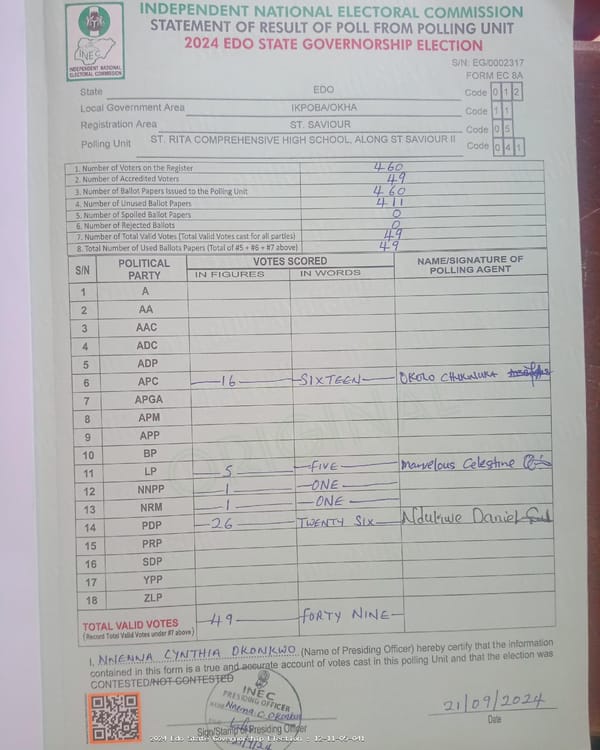 INDEPENDENT NATIONAL ELECTORAL COMMISSION
STATEMENT OF RESULT OF POLL FROM POLLING UNIT
2024 EDO STATE GOVERNORSHIP ELECTION
INEC
INDEPENDENT NATIONAL
ELECTORAL COMMISSION
S/N: EG/0002317
FORM EC 8A
State EDO Code 0 1 2
Local Government Area IKPOBA/OKHA Code 1 1
Registration Area ST. SAVIOUR Code 0 5
Polling Unit ST. RITA COMPREHENSIVE HIGH SCHOOL, ALONG ST SAVIOUR II Code 0 4 1
1. Number of Voters on the Register 460
2. Number of Accredited Voters 49
3. Number of Ballot Papers Issued to the Polling Unit 460
4. Number of Unused Ballot Papers 411
5. Number of Spoiled Ballot Papers 0
6. Number of Rejected Ballots 0
7. Number of Total Valid Votes (Total Valid Votes cast for all parties) 49
8. Total Number of Used Ballots Papers (Total of #5 + #6 + #7 above) 49
S/N POLITICAL PARTY VOTES SCORED NAME/SIGNATURE OF POLLING AGENT
IN FIGURES IN WORDS
1 A
2 AA
3 AAC
4 ADC
5 ADP
6 APC 16 SIXTEEN OKOLO CHUKWUKA
7 APGA
8 APM
9 APP
10 BP
11 LP 5 FIVE Marvelous Celestine
12 NNPP 1 ONE
13 NRM 1 ONE
14 PDP 26 TWENTY SIX Ndukwe Daniel
15 PRP
16 SDP
17 YPP
18 ZLP
TOTAL VALID VOTES 49 FORTY NINE
(Record Total Valid Votes under #7 above)
I, NNENNA CYNTHIA OKONKWO (Name of Presiding Officer) hereby certify that the information
contained in this form is a true and accurate account of votes cast in this polling Unit and that the election was
CONTESTED/NOT CONTESTED
INEC
PRESIDING OFFICER
Nnenna C. Okonkwo
Sign/Stamp of Presiding Officer
21/09/2024
Date
2024 Edo State Governorship Election : 12-11-05-041